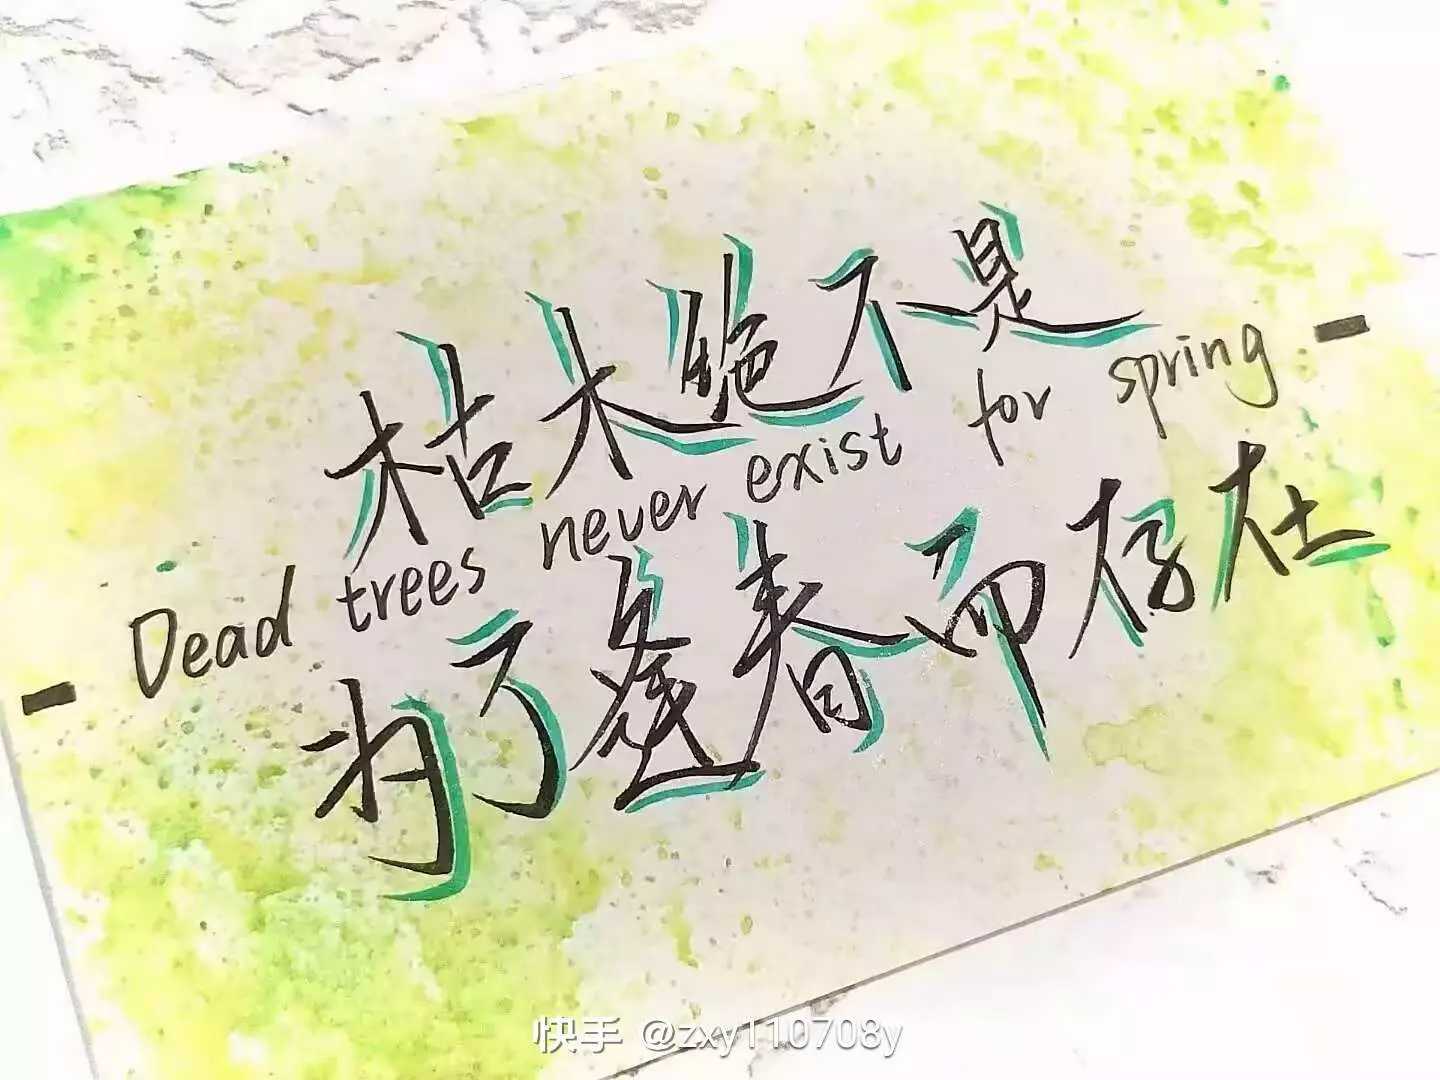 枯木绝不是
- Dead trees never exist for spring -
为了逢春而存在
快手 @zxy110708y